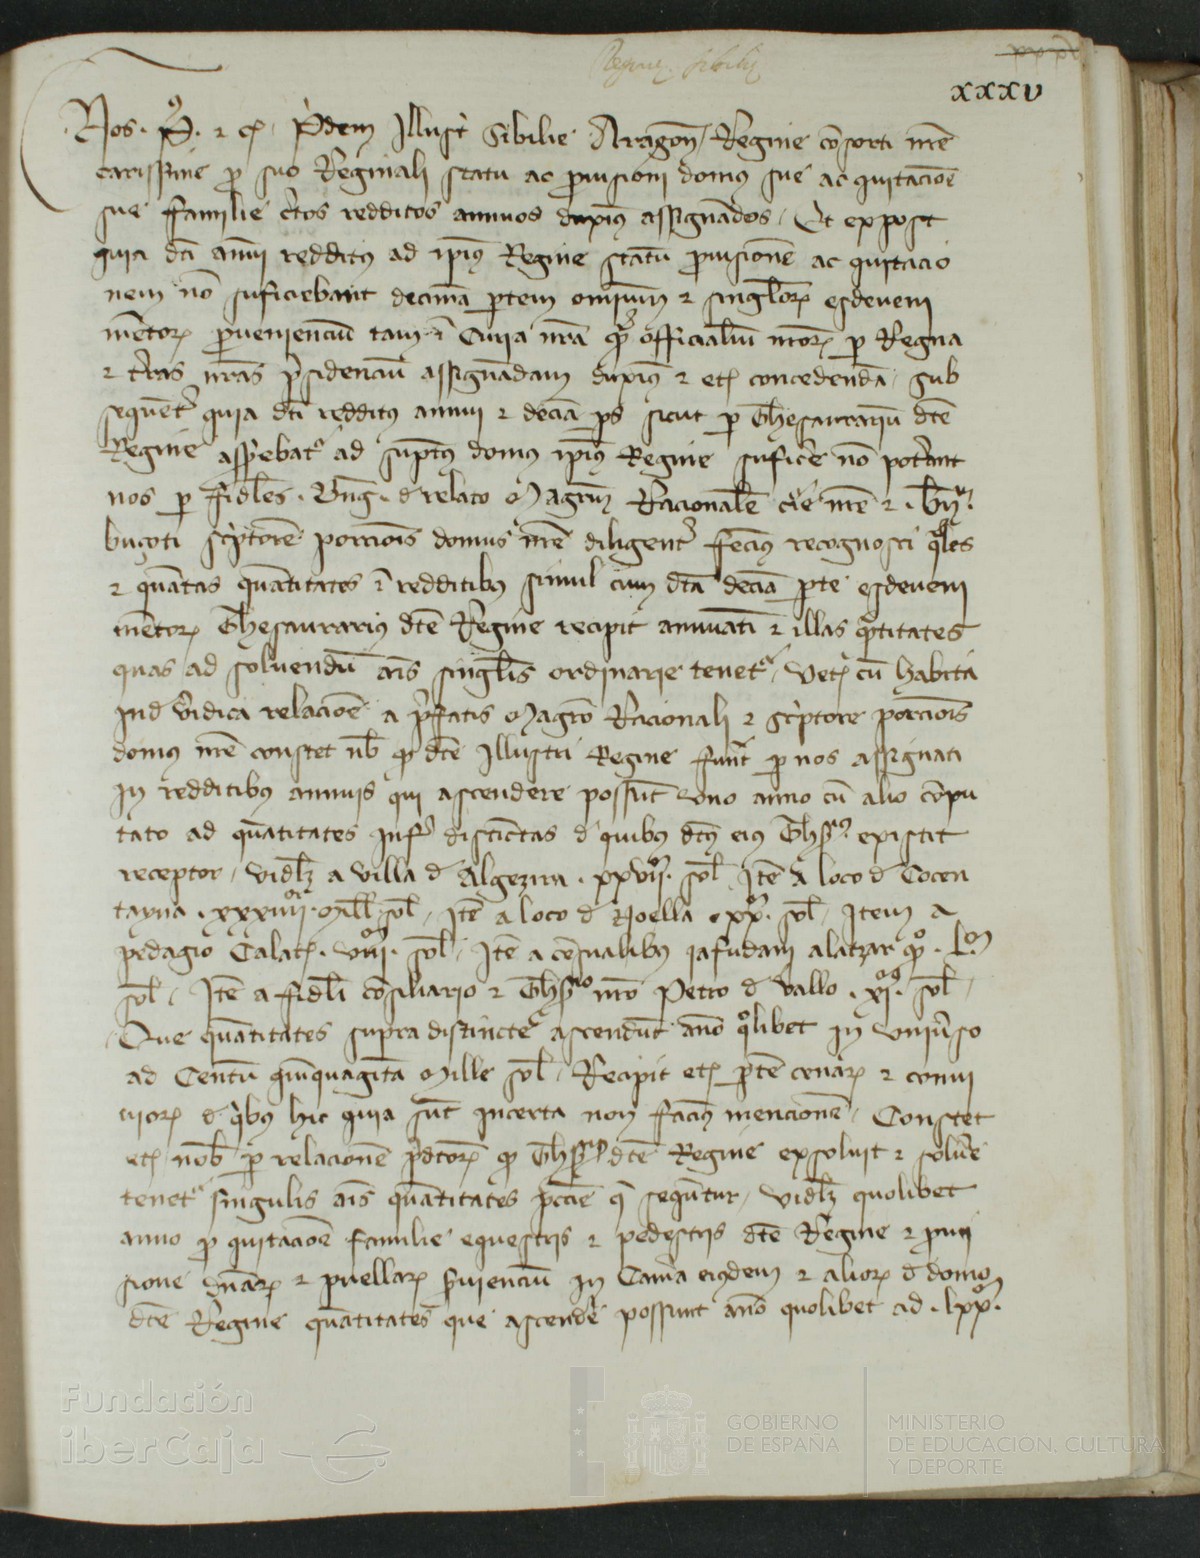 Regine Sibilie
xxxv
Nos P. etc. Pridem Illustri Sibilie Aragon Regine consorti nre
carissime p suo Reginali statu ac provisioni domus sue ac quitacioe
sue familie certos redditos annuos duximus assignandos. Et ex post
quia dci annui redditus ad ipius Regine statum provisione ac quitacio
nem no suficiebant decima ptem omnium et singulor esdeveni
mentor pveniencium tam i Curia nra q officialium nror p Regna
et terras nras presidencium assignadam duximus et eciam concedenda sub
sequenter quia dti redditus annui et decia ps sicut p Thesaurarium dte
Regine asserebatur ad suptus domus ipius Regine suficere no poterant
nos p fideles Bng de relato Magrum Racionale curie nre et bn
buçoti scriptore porcionis domus nre diligenter fecimus recognosci quales
et quantas quantitates i redditibus simul cum dta decia pte esdeveni
mentor Thesaurarius dte Regine recipit annuati et illas quantitates
quas ad solvendu anis singulis ordinarie tenetur. Verum cu habita
inde veridica relacioe a prefatis Magro Racionali et scriptore porcionis
domus nre constet nobis q dte Illustri Regine sunt p nos assignati
in redditibus annuis qui ascendere possunt uno anno cu alio compu
tato ad quantitates infra distinctas de quibus dtus eius Thes existit
receptor, videlicet a villa de Algezira xxvii sol Ite a loco de Cocen
tayna xxxiiii mill sol, Ite a loco de Noella xx sol, Item a
pedagio Calat viii sol, Ite a censualibus Jafudam alatzar q L
sol, Ite a fideli consiliario et Thes nro Petro de Vallo xi sol,
Que quantitates supra distincte ascendunt ano quolibet in universo
ad Centu quinquaginta Mille sol, Recipit eciam parte cenar et convi
vior de quibus hic quia sunt incerta non facimus mencione, Constet
eciam nobis p relacione predictor q Thes dte Regine exsolvit et solvere
tenetur singulis anis quantitates peccuie que sequntur, videlicet quolibet
anno p quitacioe familie equestris et pedestris dte Regine et provi
sione dnar et puellar serviencium in Camera eiusdem et alior de domo
dte Regine quantitates que ascendere possunt ano quolibet ad Lxx
Fundación
iberCaja
GOBIERNO
DE ESPAÑA
MINISTERIO
DE EDUCACIÓN, CULTURA
Y DEPORTE